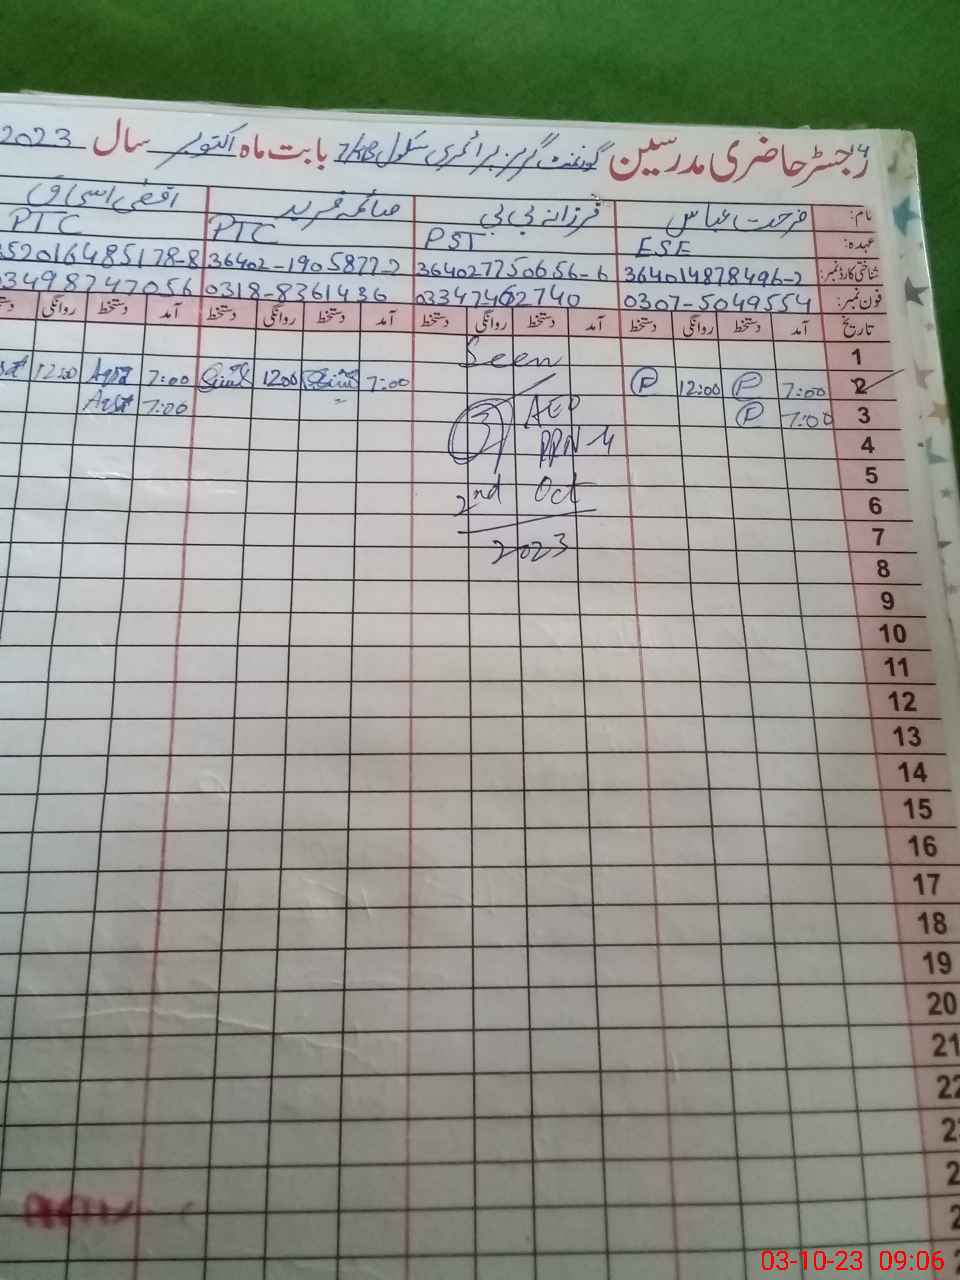 رجسٹر حاضری مدرسین گورنمنٹ گرلز پرائمری سکول 7/KB بابت ماہ اکتوبر سال 2023
نام: فرحت عباس فرزانہ بی بی صائمہ فرید اقصٰی اسحاق
عہدہ: ESE PST PTC PTC
شناختی کارڈ نمبر: 364014878496-2 364027750656-6 36402-1905877-2 352016485178-8
فون نمبر: 0307-5049554 03347462740 0318-8361436 03498747056
تاریخ آمد دستخط روانگی دستخط آمد دستخط روانگی دستخط آمد دستخط روانگی دستخط آمد دستخط روانگی
1 Seen
2 7:00 P 12:00 P 7:00 12:00 7:00 Aqsa 12:00
3 7:00 P AEO 7:00
4 PPN-4
5
6 2nd Oct
7 2023
8
9
10
11
12
13
14
15
16
17
18
19
20
21
03-10-23 09:06